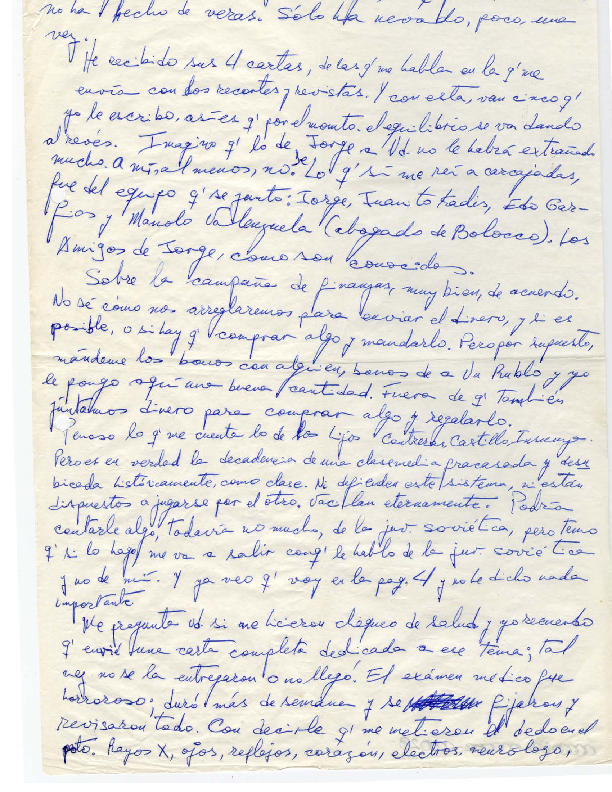 no ha hecho de veras. Sólo ha nevado, poco, una
vez.
He recibido sus 4 cartas, de las q' me hablan en la q' me
envía con los recortes y revistas. Y con esta, van cinco q'
yo le escribo, así es q' por el momto. el equilibrio se va dando
al revés. Imagino q' lo de Jorge a Ud. no le habrá extrañado
mucho. A mí, al menos, no. Lo q' sí me reí a carcajadas,
fue del equipo q' se juntó: Jorge, Juanito Kadis, Edo Gar-
fias y Manolo Valenzuela (abogado de Bolocco). Los
Amigos de Jorge, como son conocidos.
Sobre la campaña de finanzas, muy bien, de acuerdo.
No sé cómo nos arreglaremos para enviar el dinero, y si es
posible, o si hay q' comprar algo y mandarlo. Pero por supuesto,
mándeme los bonos con alguien, bonos de a Un Rublo y yo
le pongo aquí una buena cantidad. Fuera de q' también
juntamos dinero para comprar algo y regalarlo.
Penoso lo q' me cuenta lo de los hijos Contreras Castillo, Insunza.
Pero es en verdad la decadencia de una clase media fracasada y desu
bicada históricamente, como clase. Ni defienden este sistema, ni están
dispuestos a jugarse por el otro. Vacilan eternamente. Podría
contarle algo, todavía no mucho, de la juv. soviética, pero temo
q' si lo hago, me va a salir conq' le hablo de la juv. soviética
y no de mí. Y ya veo q' voy en la pag. 4 y no he dicho nada
importante
Me pregunta Ud. si me hicieron chequeo de salud y yo recuerdo
q' envié una carta completa dedicada a ese tema; tal
vez no se la entregaron o no llegó. El exámen médico fue
horroroso; duró más de semana y se fijaron y
revisaron todo. Con decirle q' me metieron el dedo en el
poto. Rayos X, ojos, reflejos, corazón, electros, neurólogo,